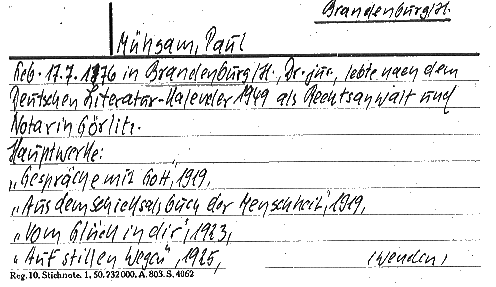 Brandenburg/H.
Mühsam, Paul
Geb. 17.7.1876 in Brandenburg/H., Dr. jur., lebte nach dem
Deutschen Literatur-Kalender 1949 als Rechtsanwalt und
Notar in Görlitz.
Hauptwerke:
„Gespräche mit Gott", 1919,
„Aus dem Schicksalsbuch der Menschheit", 1919,
„Vom Glück in dir", 1923,
„Auf stillen Wegen", 1925,
(wenden)
Reg. 10. Stichnote. 1. 50.732000. A. 803. S. 4062